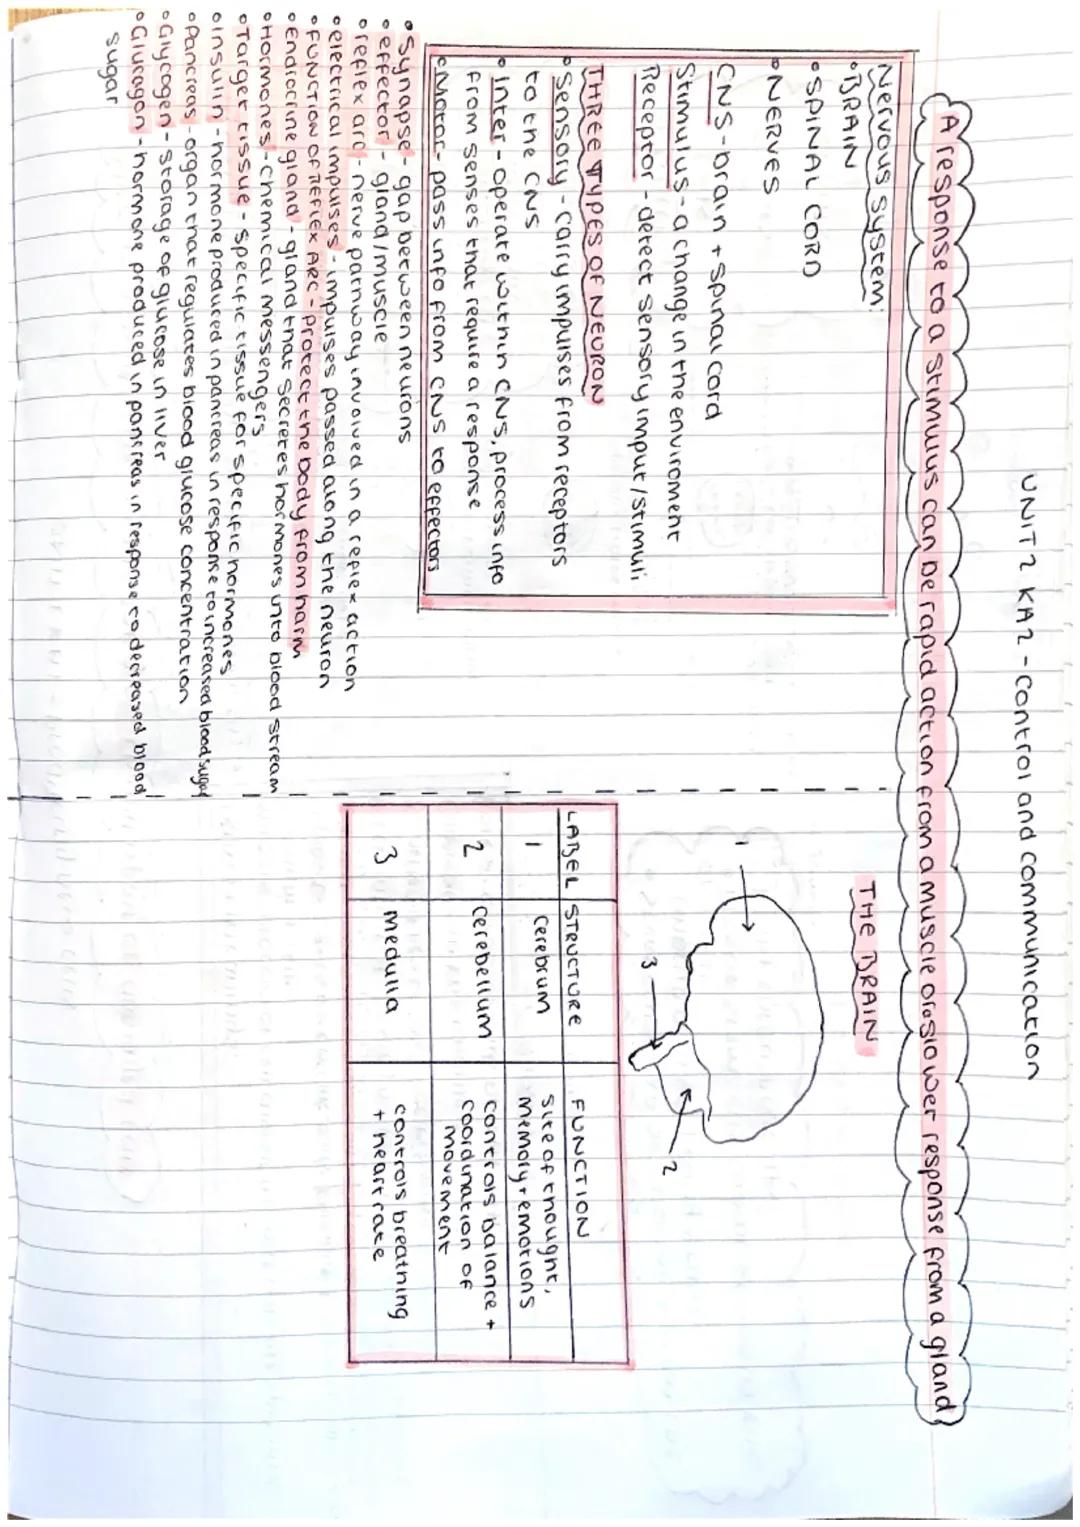 UNIT 2 KA2 - Control and communication
A response to a stimulus can be rapid action from a muscle or a slower response from a gland
Nervous system:
• BRAIN
• SPINAL CORD
• NERVES
CNS - brain + spinal cord
Stimulus - a change in the enviroment
Receptor - detect sensory imput / stimuli
THREE TYPES OF NEURON
• Sensory - carry impulses from receptors
to the CNS
• Inter - operate within CNS, process info
from senses that require a response
• Motor - pass info from CNS to effectors
• Synapse - gap between neurons
• effector - gland/muscle
• reflex arc - nerve pathway involved in a reflex action
• electrical impulses - impulses passed along the neuron
• FUNCTION OF REFLEX ARC - protect the body from harm
• Endrocrine gland - gland that secretes hormones into blood stream
• Hormones - chemical messengers
• Target tissue - specific tissue for specific hormones
• insulin - hormone produced in pancreas in response to increased blood sugar
• Pancreas - organ that regulates blood glucose concentration
• Glycogen - storage of glucose in liver
• Glucagon - hormone produced in pancreas in response to decreased blood
sugar
THE BRAIN
1
2
3
LABEL STRUCTURE FUNCTION
1 Cerebrum site of thought,
memory + emotions
2 Cerebellum controls balance +
coordination of
movement
3 medulla controls breathing
+ heart rate